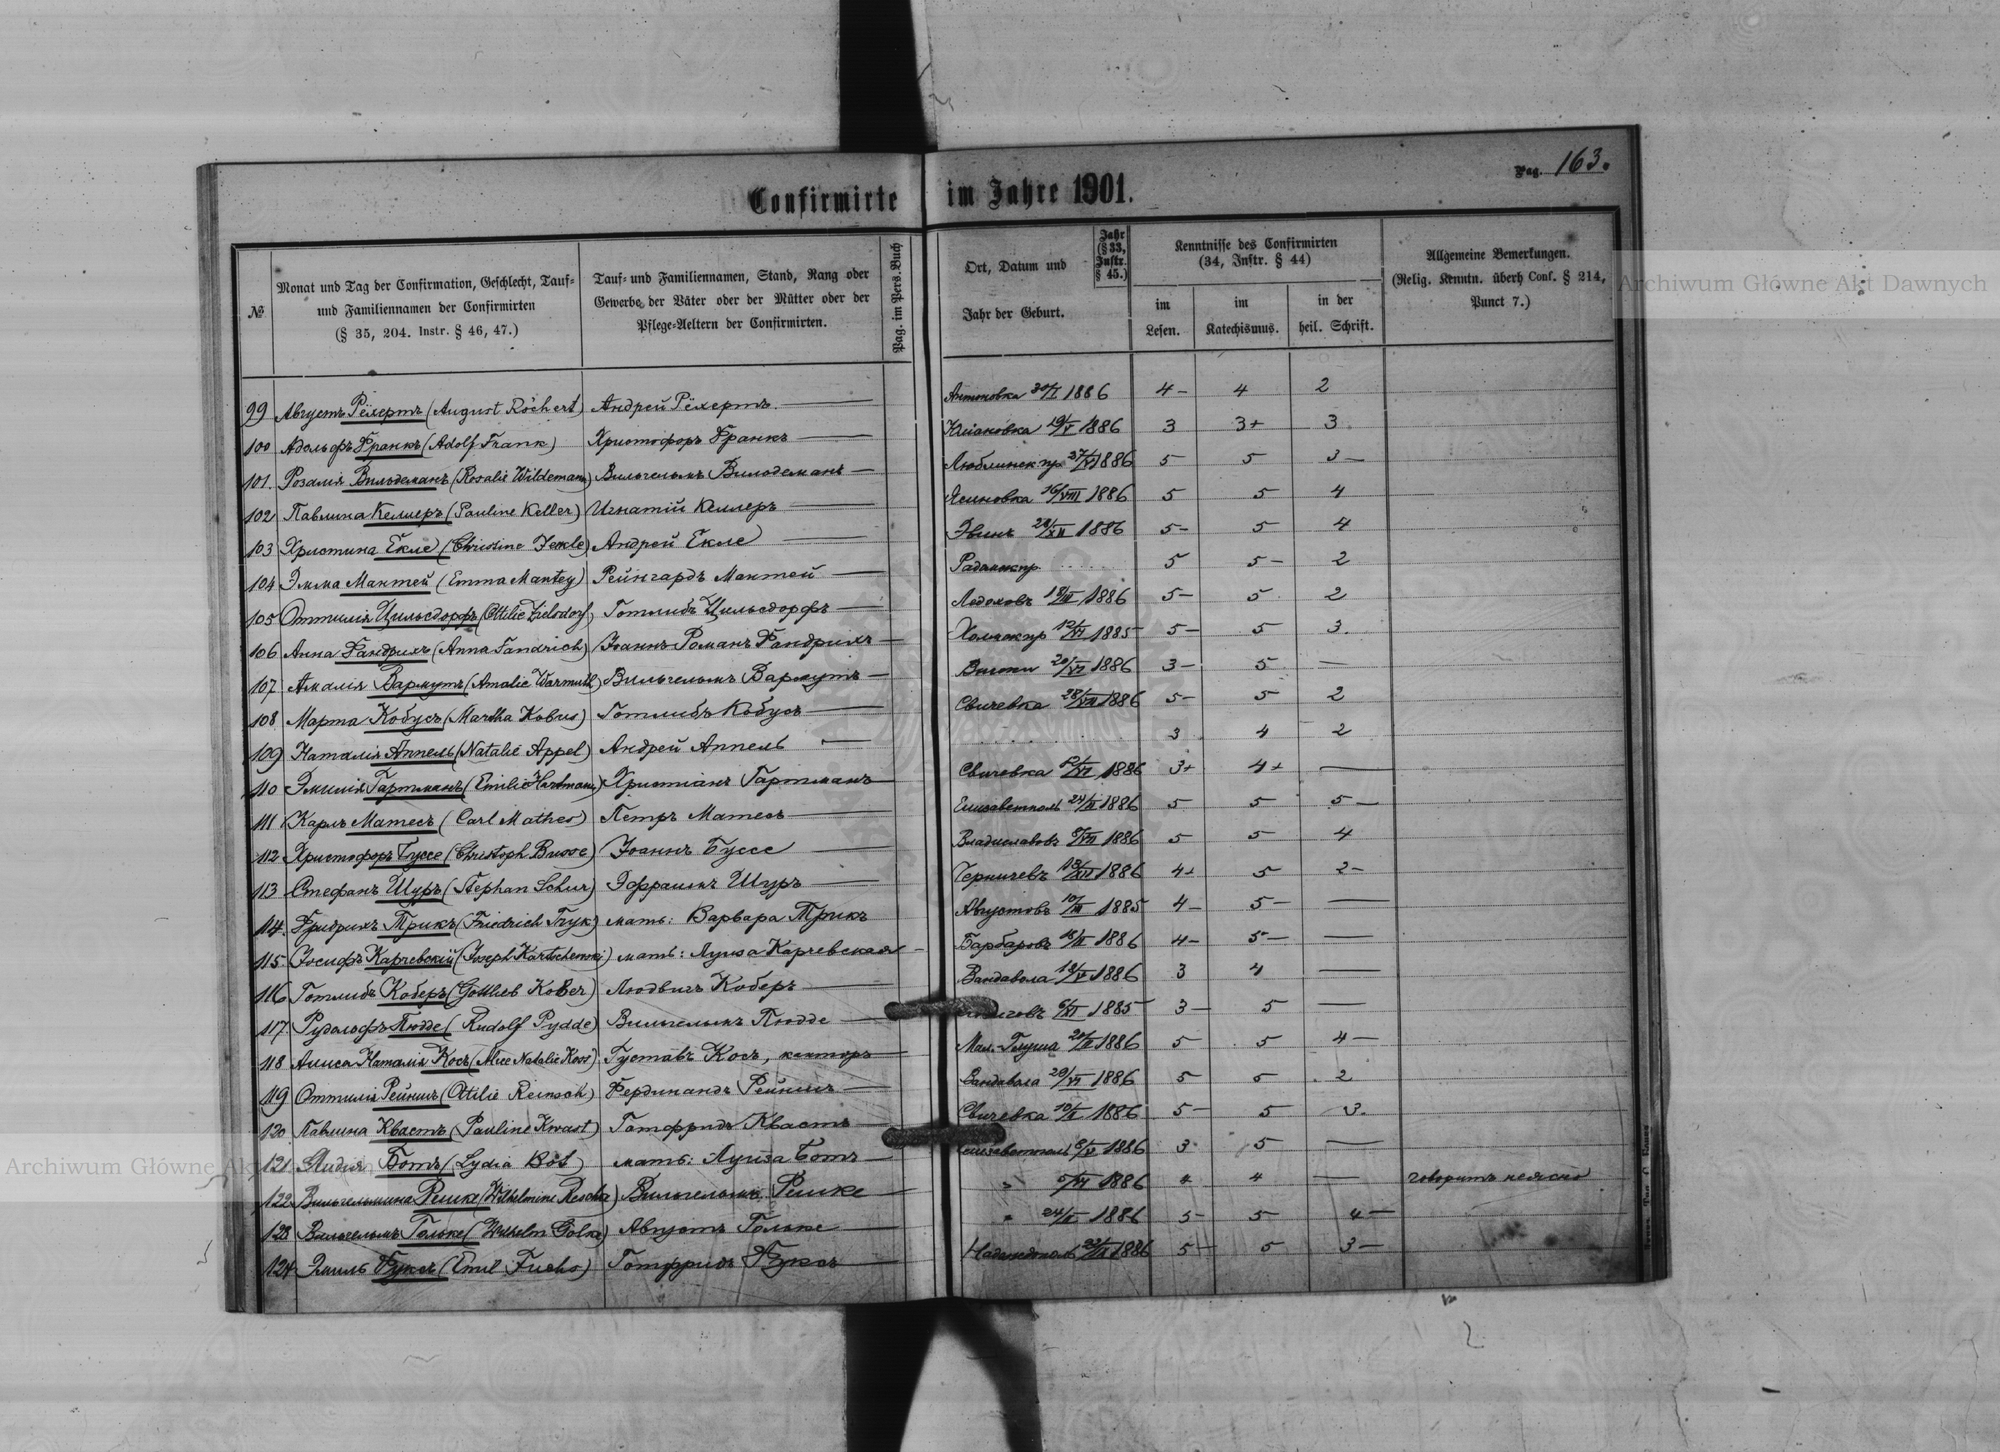 Pag. 163.
Confirmirte im Jahre 1901.
№
Monat und Tag der Confirmation, Geschlecht, Tauf- und Familiennamen der Confirmirten (§ 35, 204. Instr. § 46, 47.)
Tauf- und Familiennamen, Stand, Rang oder Gewerbe der Väter oder der Mütter oder der Pflege-Aeltern der Confirmirten.
Pag. im Pers.Buch
Ort, Datum und Jahr der Geburt.
Jahr (§ 33, Instr. § 45.)
Kenntnisse des Confirmirten (34, Instr. § 44)
im Lesen.
im Katechismus.
in der heil. Schrift.
Allgemeine Bemerkungen. (Relig. Kenntn. überh Conf. § 214, Punct 7.)
99 Августъ Рёхертъ (August Röchert) Андрей Рёхертъ. Антоновка 30/I 1886 4- 4 2
100 Адольфъ Франкъ (Adolf Frank) Христофоръ Франкъ 19/V 1886 3 3+ 3
101. Розалія Вильдеманъ (Rosalie Wildemann) Вильгельмъ Вильдеманъ Люблинск.пр. 1886 5 5 3-
102 Павлина Келлеръ (Pauline Keller) Игнатій Келлеръ Ясиновка 16/VIII 1886 5 5 4
103 Христина Екле (Christine Jekle) Андрей Екле 28/XII 1886 5- 5 4
104 Эмма Мантей (Emma Mantey) Рейнгардъ Мантей 5 5- 2
105 Оттилія Цильсдорфъ (Ottilie Zielsdorf) Готлибъ Цильсдорфъ 1886 5- 5 2
106 Анна Фандрихъ (Anna Fandrich) Іоаннъ Романъ Фандрихъ 1885 5- 5 3.
107 Амалія Вармутъ (Amalie Warmuth) Вильгельмъ Вармутъ 20/VI 1886 3- 5 —
108 Марта Кобусъ (Martha Kobus) Готлибъ Кобусъ Свичевка 28/VIII 1886 5- 5 2
109 Наталія Аппель (Natalie Appel) Андрей Аппель 3 4 2
110 Эмилія Гартманъ (Emilie Hartmann) Христіанъ Гартманъ Свичевка 1886 3+ 4+ —
111 Карлъ Матесъ (Carl Mathes) Петръ Матесъ Елизаветполь 1886 5 5 5-
112 Христофоръ Буссе (Christoph Busse) Іоаннъ Буссе Владиславовъ 1886 5 5 4
113 Стефанъ Шуръ (Stephan Schur) Эфраимъ Шуръ Черничевъ 18/XII 1886 4+ 5 2-
114. Фридрихъ Трикъ (Friedrich Tryk) мать: Варвара Трикъ Августовъ 10/III 1885 4- 5- —
115. Іосифъ Карчевскій (Joseph Kartschewski) мать: Луиза Карчевская Барбаровъ 1886 4- 5- —
116 Готлибъ Коберъ (Gottlieb Kober) Людвигъ Коберъ Вандавола 1886 3 4 —
117. Рудольфъ Пюдде (Rudolf Pydde) Вильгельмъ Пюдде 6/XI 1885 3- 5 —
118 Алиса Наталія Косъ (Alice Natalie Koss) Густавъ Косъ, канторъ Мал. Глуша 1886 5 5 4-
119 Оттилія Рейншъ (Ottilie Reinsch) Фердинандъ Рейншъ Вандавола 29/VI 1886 5 5 2
120 Павлина Квастъ (Pauline Kwast) Готфридъ Квастъ Свичевка 1886 5- 5 3.
121 Лидія Ботъ (Lydia Bot) мать: Луиза Ботъ Елизаветполь 1886 3 5 —
122 Вильгельмина Решке (Wilhelmine Reschke) Вильгельмъ Решке " 1886 4 4 — говоритъ неясно
123 Вильгельмъ Гольке (Wilhelm Golke) Августъ Гольке " 1886 5- 5 4-
124 Эмиль Фуксъ (Emil Fuchs) Готфридъ Фуксъ 1886 5- 5 3-
Archiwum Główne Akt Dawnych
Archiwum Główne Akt Dawnych